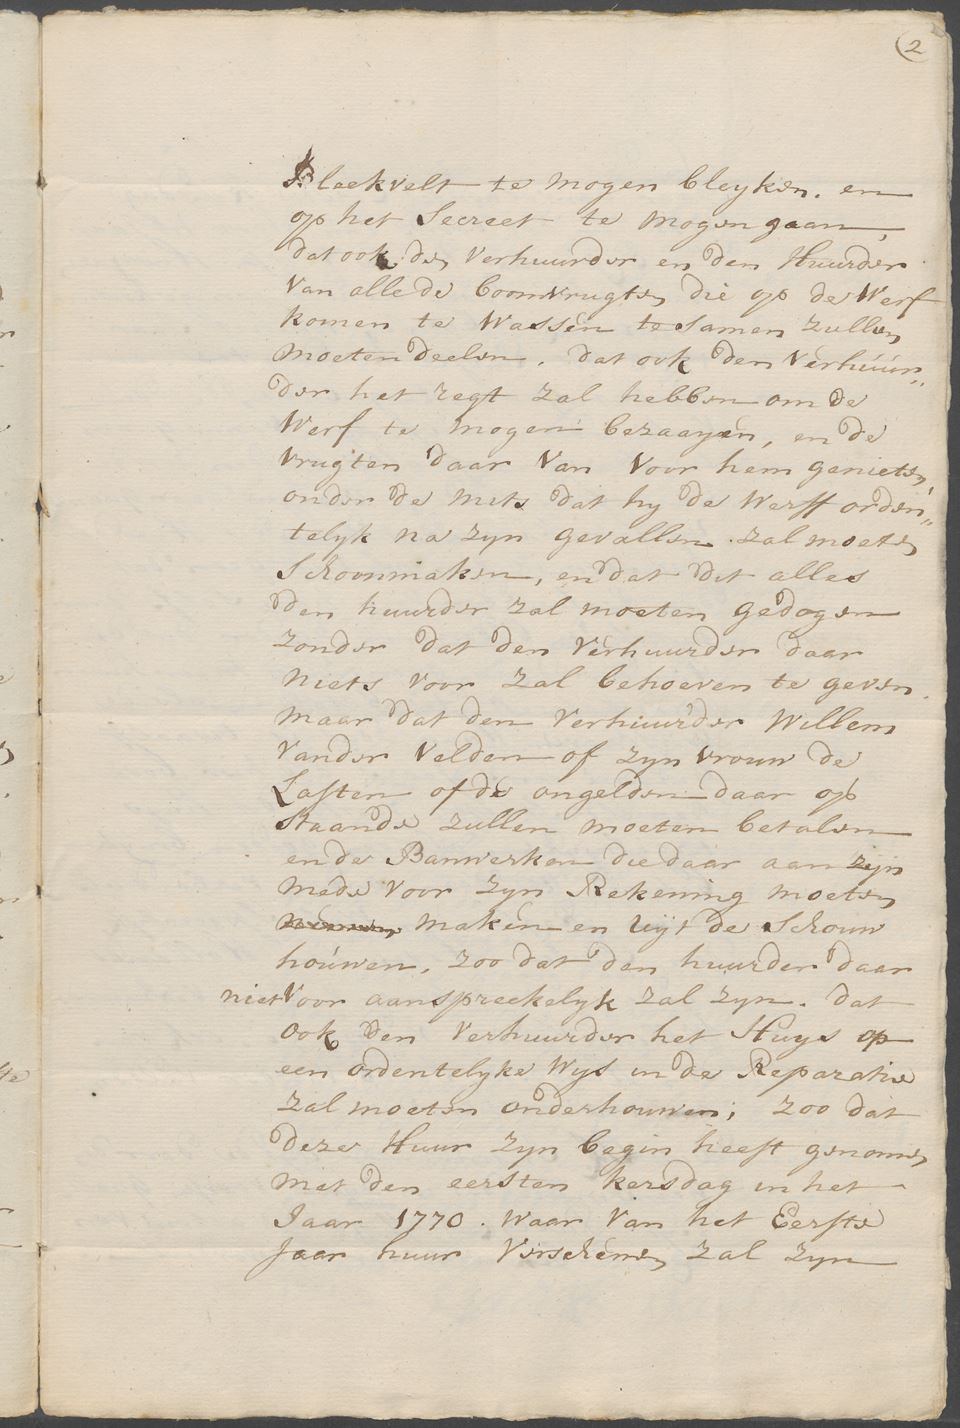 2
Bleekvelt te mogen bleyken. en
op het Secreet te mogen gaan,
dat ook den verhuurder en den Huurder
van alle de boomvrugten die op de Werf
komen te Wassen te samen zullen
moeten deelen. dat ook den verhúúr„
der het regt zal hebben om de
Werf te mogen bezaayen, en de
vrugten daar van voor hem genieten,
onder de mits dat hy de Werff orden„
telyk na zyn gevallen zal moeten
Schoonmaken, en dat dit alles
den huurder zal moeten gedogen
zonder dat den verhuurder daar
niets voor zal behoeven te geven.
maar dat den verhuurder Willem
vander Velden of zyn vrouw de
Lasten of de ongelden daar op
staande zullen moeten betalen
en de Banwerken die daar aan zyn
mede voor zyn Rekening moeten
maken en uyt de Schouw
houwen, zoo dat den huurder daar
niet voor aanspreekelyk zal zyn. dat
ook den verhuurder het Huys op
een ordentelyke wys in de Reparatie
zal moeten onderhouwen; zoo dat
deze Huur zyn begin heeft genomen
met den eersten kersdag in het
Jaar 1770. waar van het Eerste
Jaar huur verschenen zal zyn